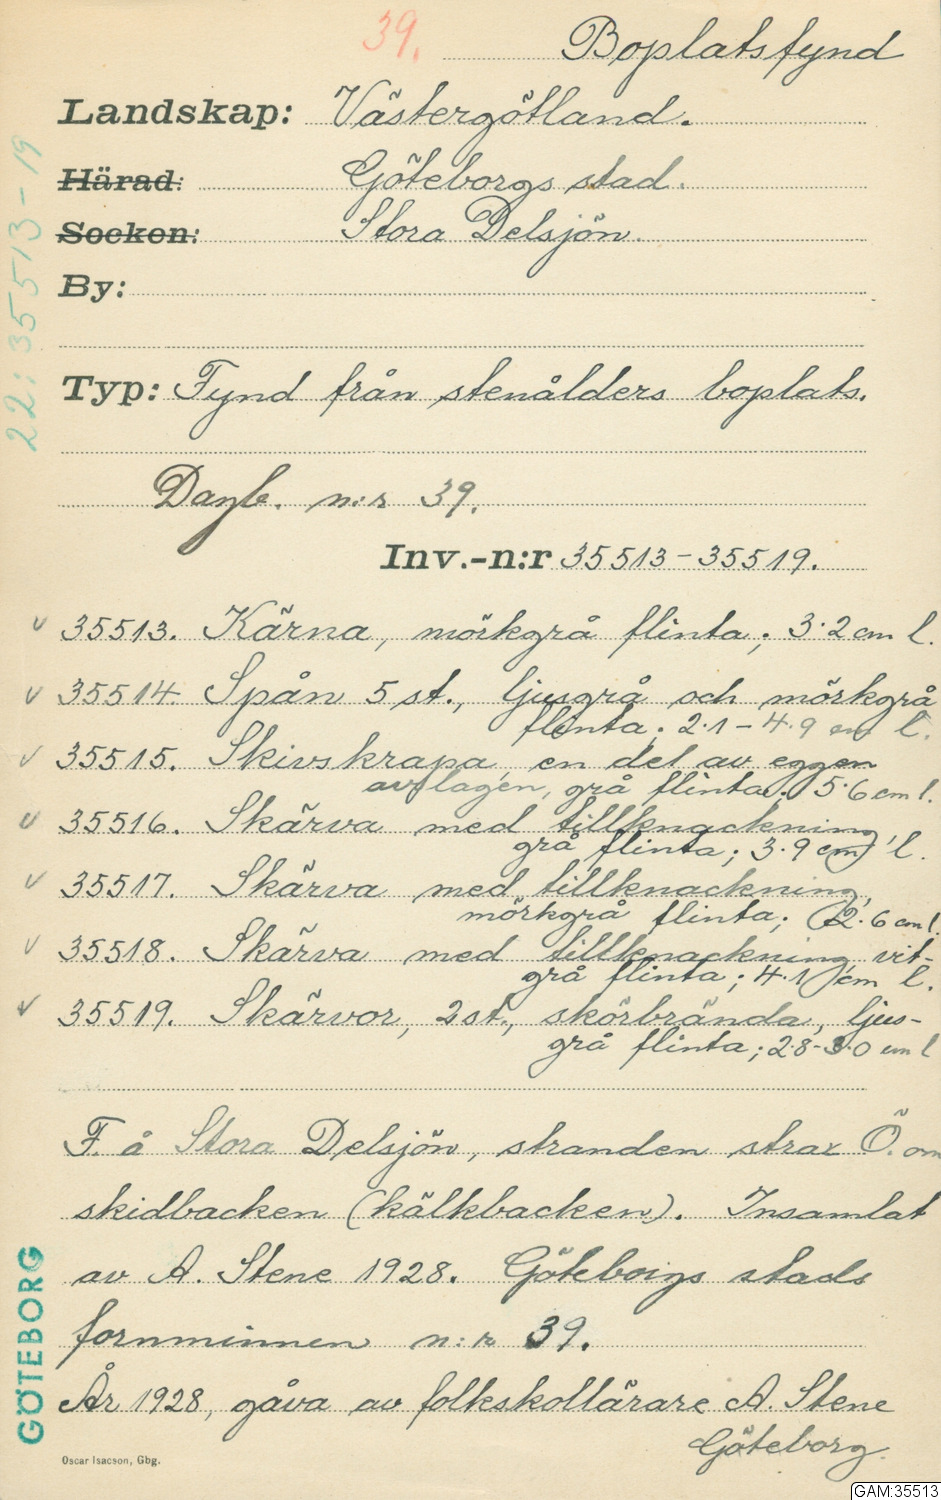 39.
Boplatsfynd
Landskap: Västergötland.
Härad: Göteborgs stad.
Socken: Stora Delsjön.
By:
Typ: Fynd från stenålders boplats.
Dagb. n:r 39.
Inv.-n:r 35513-35519.
v 35513. Kärna, mörkgrå flinta; 3.2 cm l.
v 35514. Spån 5 st., ljusgrå och mörkgrå
flinta; 2.1-4.9 cm l.
v 35515. Skivskrapa, en del av eggen
avslagen, grå flinta; 5.6 cm l.
v 35516. Skärva med tillknackning,
grå flinta; 3.9 cm l.
v 35517. Skärva med tillknackning,
mörkgrå flinta; 2.6 cm l.
v 35518. Skärva med tillknackning, vit-
grå flinta; 4.1 cm l.
v 35519. Skärvor, 2 st., skörbrända, ljus-
grå flinta; 2.8-3.0 cm l
F. å Stora Delsjön, stranden strax Ö. om
skidbacken (kälkbacken). Insamlat
av A. Stene 1928. Göteborgs stads
fornminnen n:r 39.
År 1928, gåva av folkskollärare A. Stene
Göteborg.
Oscar Isacson, Gbg.
22: 35513-19
GÖTEBORG
GAM:35513